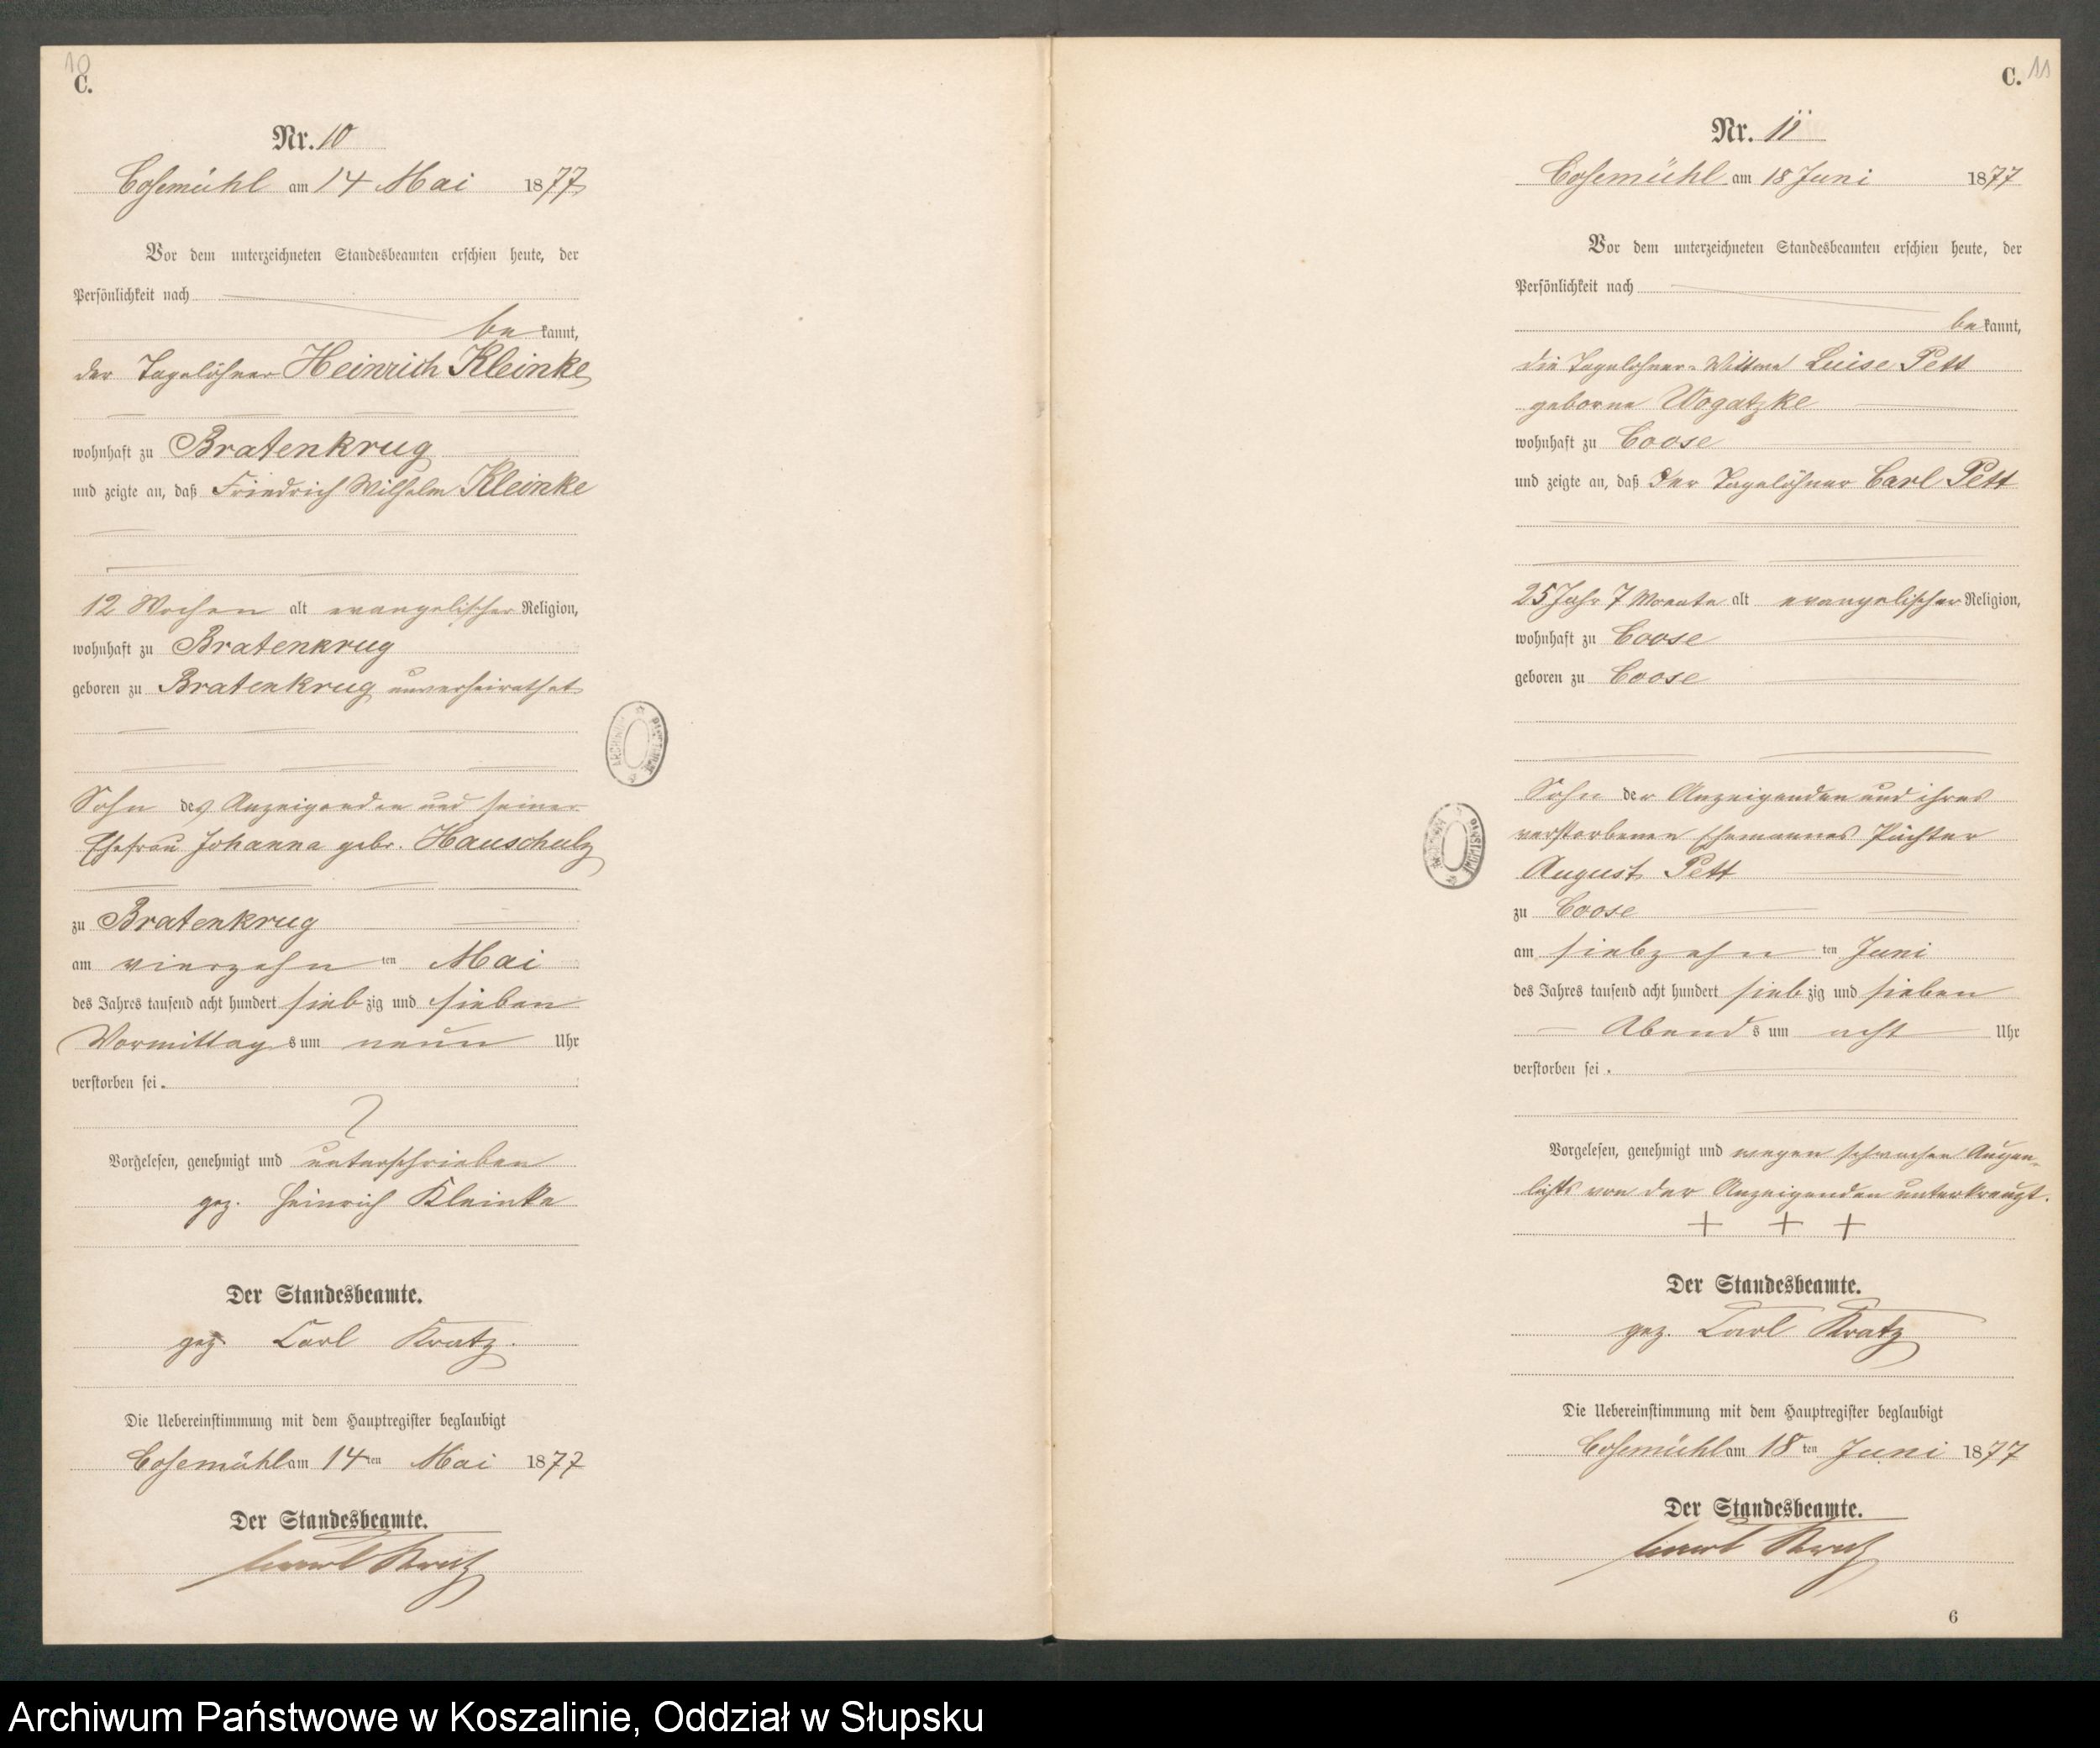 10
C.
Nr. 10
Cosemühl am 14 Mai 1877
Vor dem unterzeichneten Standesbeamten erschien heute, der
Persönlichkeit nach
be kannt,
der Tagelöhner Heinrich Kleinke
wohnhaft zu Bratenkrug
und zeigte an, daß Friedrich Wilhelm Kleinke
12 Wochen alt evangelischer Religion,
wohnhaft zu Bratenkrug
geboren zu Bratenkrug unverheirathet
Sohn des Anzeigenden und seiner
Ehefrau Johanna gebr. Hauschulz
zu Bratenkrug
am vierzehn ten Mai
des Jahres tausend acht hundert sieb zig und sieben
Vormittag s um neun Uhr
verstorben sei.
Vorgelesen, genehmigt und unterschrieben
gez. Heinrich Kleinke
Der Standesbeamte.
gez. Carl Kratz.
Die Uebereinstimmung mit dem Hauptregister beglaubigt
Cosemühl am 14 ten Mai 1877
Der Standesbeamte.
Carl Kratz
ARCHIWUM PAŃSTWOWE
C. 11
Nr. 11
Cosemühl am 18 Juni 1877
Vor dem unterzeichneten Standesbeamten erschien heute, der
Persönlichkeit nach
be kannt,
die Tagelöhner-Wittwe Luise Pett
geborne Wogatzke
wohnhaft zu Coose
und zeigte an, daß der Tagelöhner Carl Pett
25 Jahr 7 Monate alt evangelischer Religion,
wohnhaft zu Coose
geboren zu Coose
Sohn der Anzeigenden und ihres
verstorbenen Ehemannes Pächter
August Pett
zu Coose
am siebzehn ten Juni
des Jahres tausend acht hundert sieb zig und sieben
Abend s um acht Uhr
verstorben sei.
Vorgelesen, genehmigt und wegen schwachen Augen-
lichts von der Anzeigenden unterkreuzt.
+ + +
Der Standesbeamte.
gez. Carl Kratz
Die Uebereinstimmung mit dem Hauptregister beglaubigt
Cosemühl am 18 ten Juni 1877
Der Standesbeamte.
Carl Kratz
6
ARCHIWUM PAŃSTWOWE
Archiwum Państwowe w Koszalinie, Oddział w Słupsku